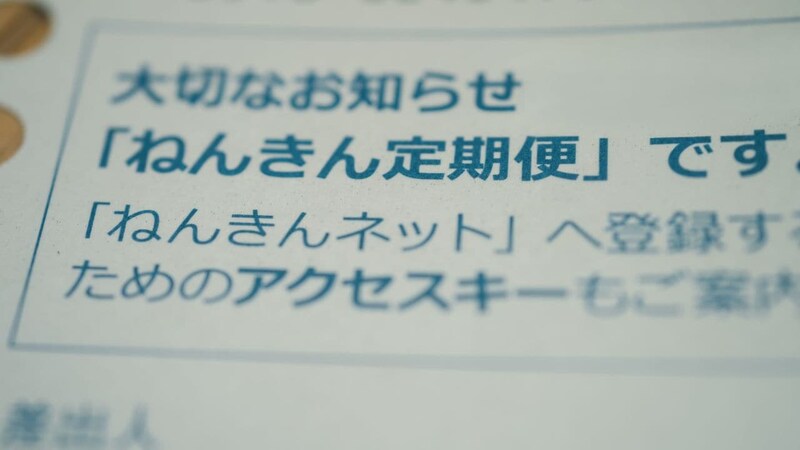 大切なお知らせ
「ねんきん定期便」です。
「ねんきんネット」へ登録する
ためのアクセスキーもご案内
差出人